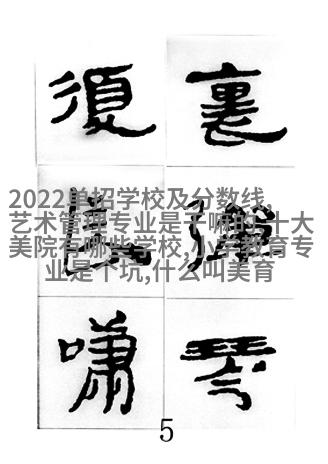 裏彈琴
復長嘯
2022单招学校及分数线,
艺术管理专业是干嘛的,十大
美院有哪些学校,小学教育专
业是个坑,什么叫美育
5